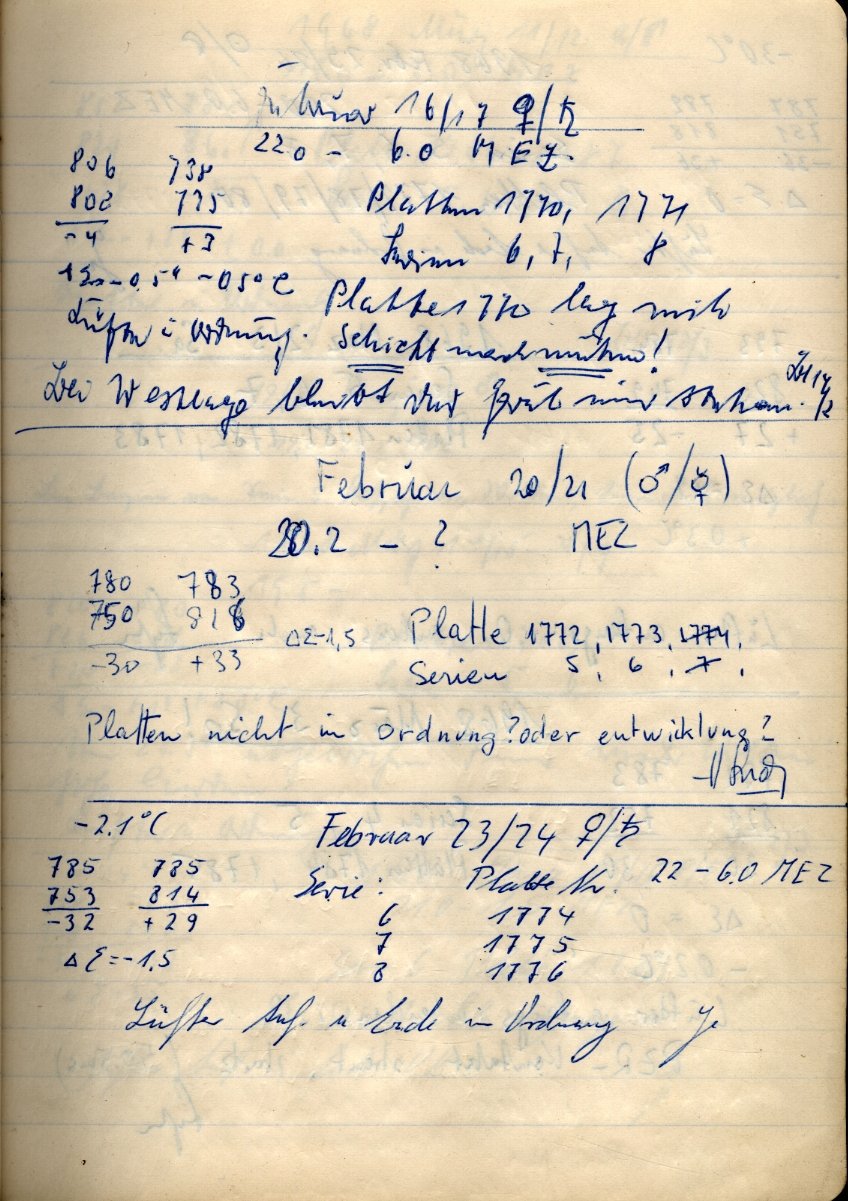 Februar 16/17 ♀/♄
22.0 - 6.0 MEZ.
806 738
802 735
-4 +3
Platten 1770, 1771
Serien 6, 7, 8
-0,5 -0,5°C
Platte 1770 lag mit
Lüfter i. Ordnung. Schicht nach unten!
Bei Westlage bleibt das Gerät stehen. 17/2
Februar 20/21 (♂/☿)
20.2 - ? MEZ
780 783
750 816
-30 +33
ΔΣ-1,5 Platte 1772, 1773, 1774,
Serien 5, 6, 7,
Platten nicht in Ordnung? oder entwicklung?
-2.1°C Februar 23/24 ♀/♄
785 785
753 814
-32 +29
ΔΣ=-1,5
Serie: Platte Nr. 22-6.0 MEZ
6 1774
7 1775
8 1776
Lüfter Anf. u Ende in Ordnung